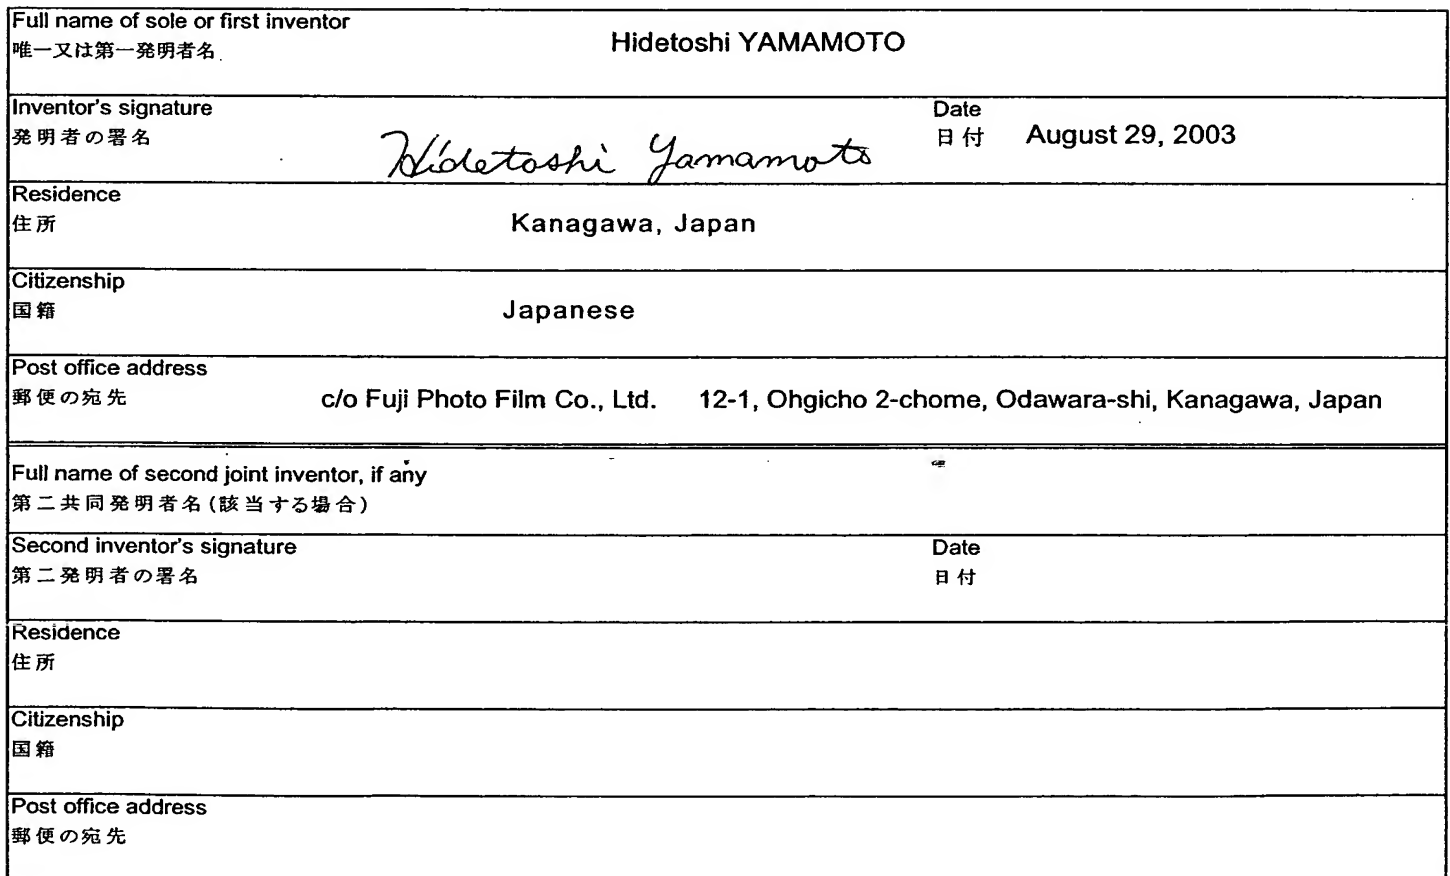 Full name of sole or first inventor
唯一又は第一発明者名 Hidetoshi YAMAMOTO
Inventor's signature Date
発明者の署名 Hidetoshi Yamamoto 日付 August 29, 2003
Residence
住所 Kanagawa, Japan
Citizenship
国籍 Japanese
Post office address
郵便の宛先 c/o Fuji Photo Film Co., Ltd. 12-1, Ohgicho 2-chome, Odawara-shi, Kanagawa, Japan
Full name of second joint inventor, if any
第二共同発明者名(該当する場合)
Second inventor's signature Date
第二発明者の署名 日付
Residence
住所
Citizenship
国籍
Post office address
郵便の宛先